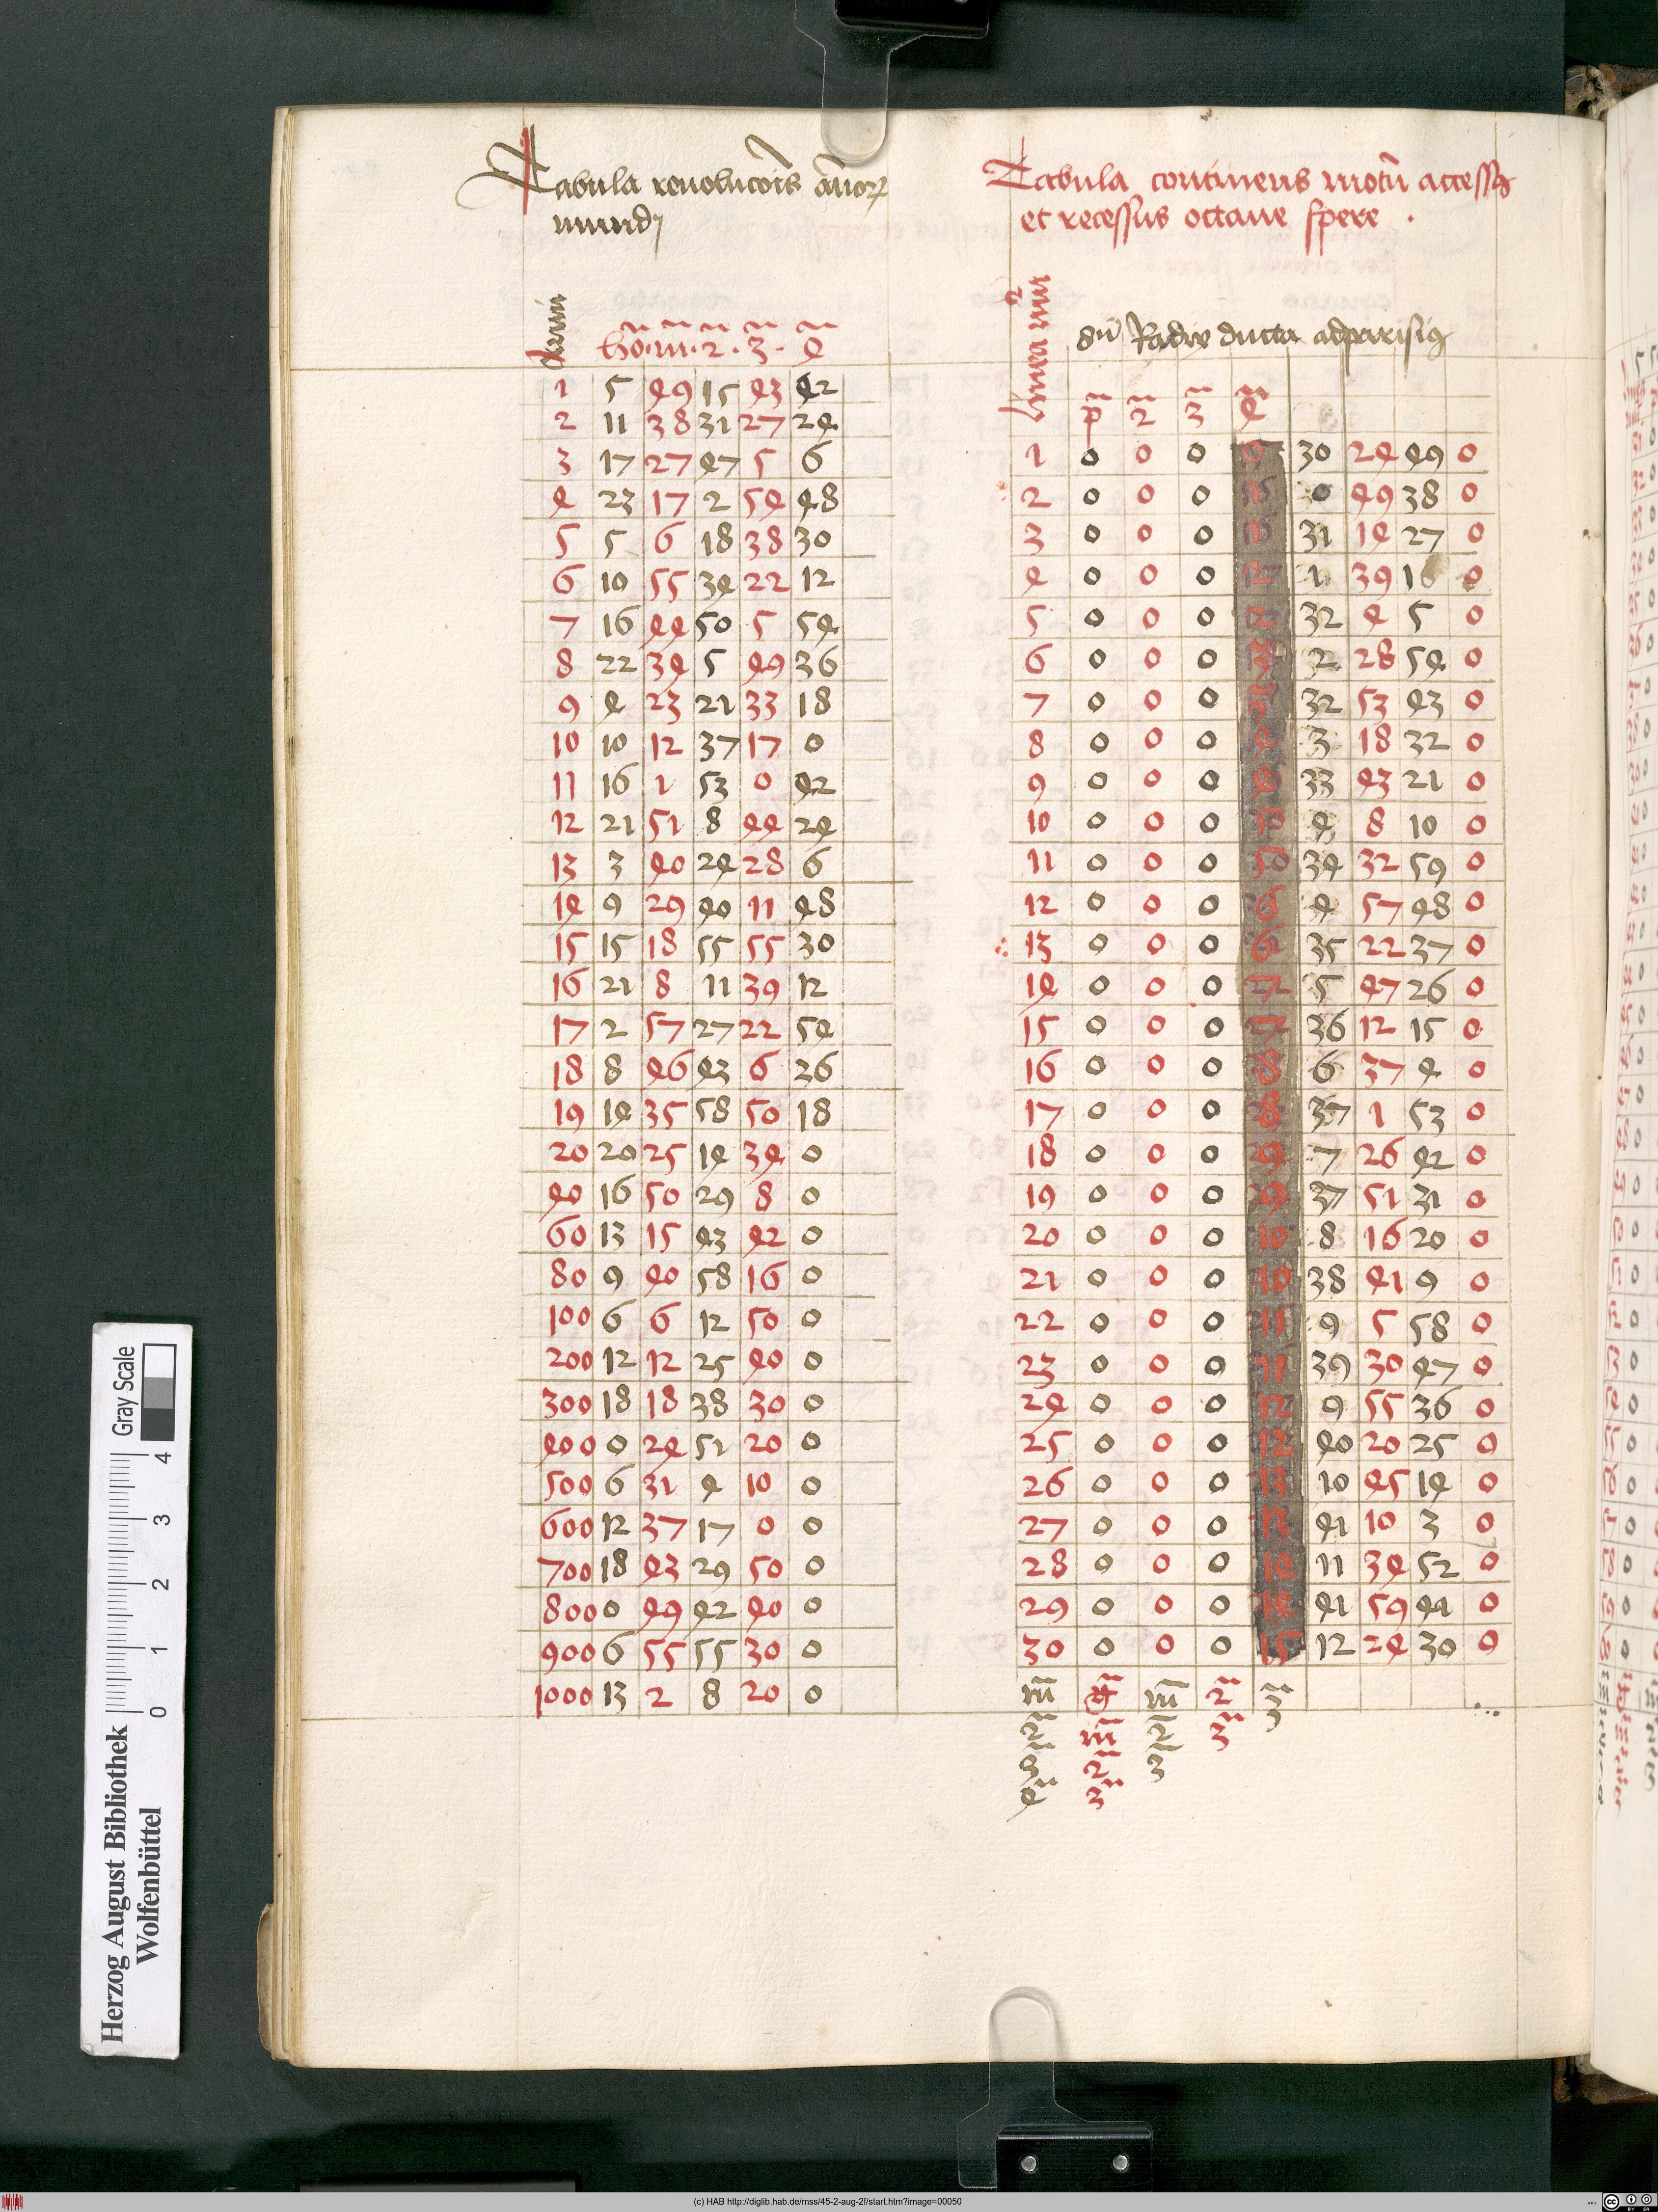 Tabula reuolucois anor
mundi
anni ho. m. 2. 3. 4
1 5 49 15 43 42
2 11 38 31 27 24
3 17 27 47 5 6
4 23 17 2 54 48
5 5 6 18 38 30
6 10 55 34 22 12
7 16 44 50 5 54
8 22 34 5 49 36
9 4 23 21 33 18
10 10 12 37 17 0
11 16 1 53 0 42
12 21 51 8 44 24
13 3 40 24 28 6
14 9 29 40 11 48
15 15 18 55 55 30
16 21 8 11 39 12
17 2 57 27 22 54
18 8 46 43 6 26
19 14 35 58 50 18
20 20 25 14 34 0
40 16 50 29 8 0
60 13 15 43 42 0
80 9 40 58 16 0
100 6 6 12 50 0
200 12 12 25 40 0
300 18 18 38 30 0
400 0 24 51 20 0
500 6 31 4 10 0
600 12 37 17 0 0
700 18 43 29 50 0
800 0 49 42 40 0
900 6 55 55 30 0
1000 13 2 8 20 0
Tabula continens motu accessus
et recessus octaue spere .
linea nu
Radix ducta
p 2 3 4
1 0 0 0 30 24 49 0
2 0 0 0 0 49 38 0
3 0 0 0 31 14 27 0
4 0 0 0 1 39 16 0
5 0 0 0 32 4 5 0
6 0 0 0 2 28 54 0
7 0 0 0 32 53 43 0
8 0 0 0 3 18 32 0
9 0 0 0 33 43 21 0
10 0 0 0 4 8 10 0
11 0 0 0 34 32 59 0
12 0 0 0 6 4 57 48 0
13 0 0 0 6 35 22 37 0
14 0 0 0 7 5 47 26 0
15 0 0 0 7 36 12 15 0
16 0 0 0 8 6 37 4 0
17 0 0 0 8 37 1 53 0
18 0 0 0 9 7 26 42 0
19 0 0 0 9 37 51 31 0
20 0 0 0 10 8 16 20 0
21 0 0 0 10 38 41 9 0
22 0 0 0 11 9 5 58 0
23 0 0 0 11 39 30 47 0
24 0 0 0 12 9 55 36 0
25 0 0 0 12 40 20 25 0
26 0 0 0 13 10 45 14 0
27 0 0 0 13 41 10 3 0
28 0 0 0 14 11 34 52 0
29 0 0 0 14 41 59 41 0
30 0 0 0 15 12 24 30 0
m g m 2 3
2 m 2 3
3 2 3
4 3
Gray Scale
0 1 2 3 4
Herzog August Bibliothek
Wolfenbüttel
(c) HAB http://diglib.hab.de/mss/45-2-aug-2f/start.htm?image=00050